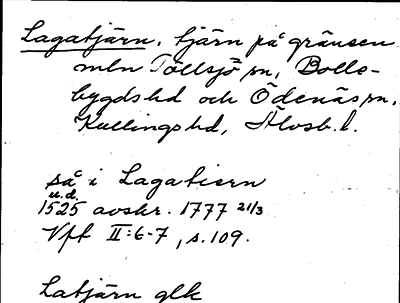 Lagatjärn, tjärn på gränsen
mln Töllsjö sn, Bolle-
bygds hd och Ödenäs sn,
Kullings hd, Älvsb. l.
så i Lagatiern
u.d.
1525 avskr. 1777 21/3
Vff II:6-7, s. 109.
Latjärn glk